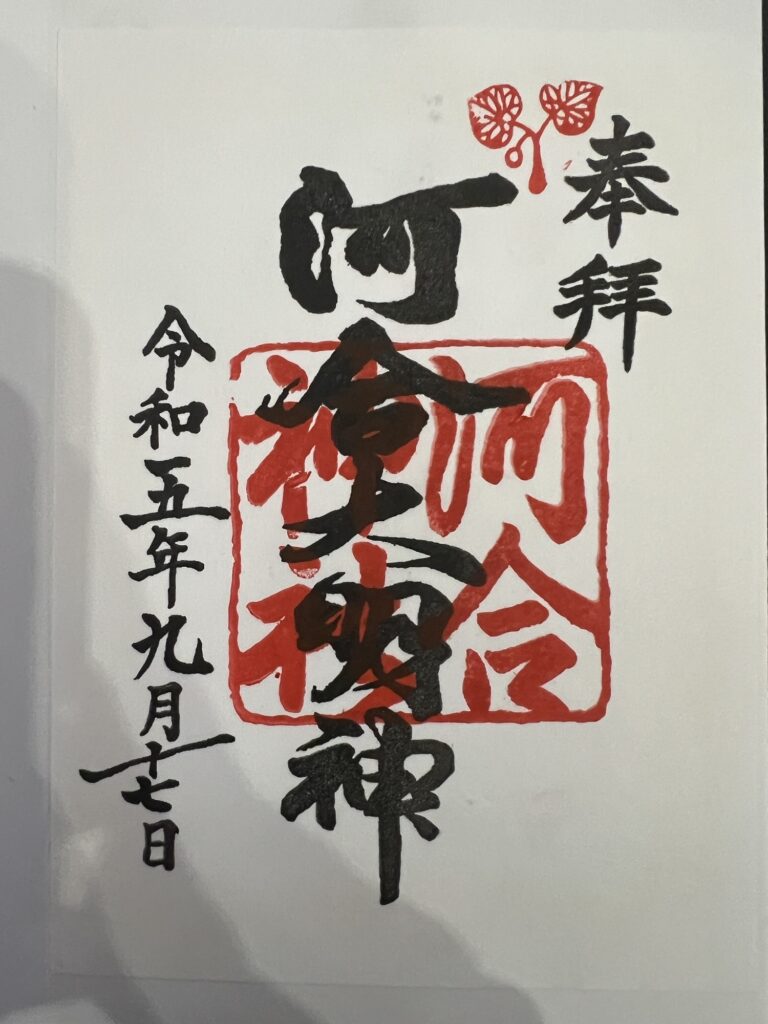 奉拝
河合大明神
河合
神社
令和五年九月十七日